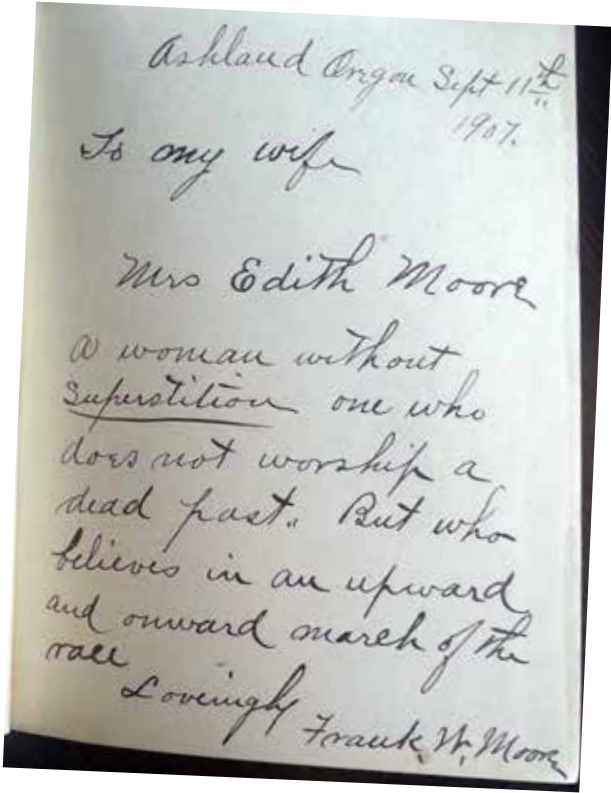 Ashland Oregon Sept 11th
1907.
To my wife
Mrs Edith Moore
A woman without
Superstition one who
does not worship a
dead past. But who
believes in an upward
and onward march of the
race
Loveingly
Frank W. Moore